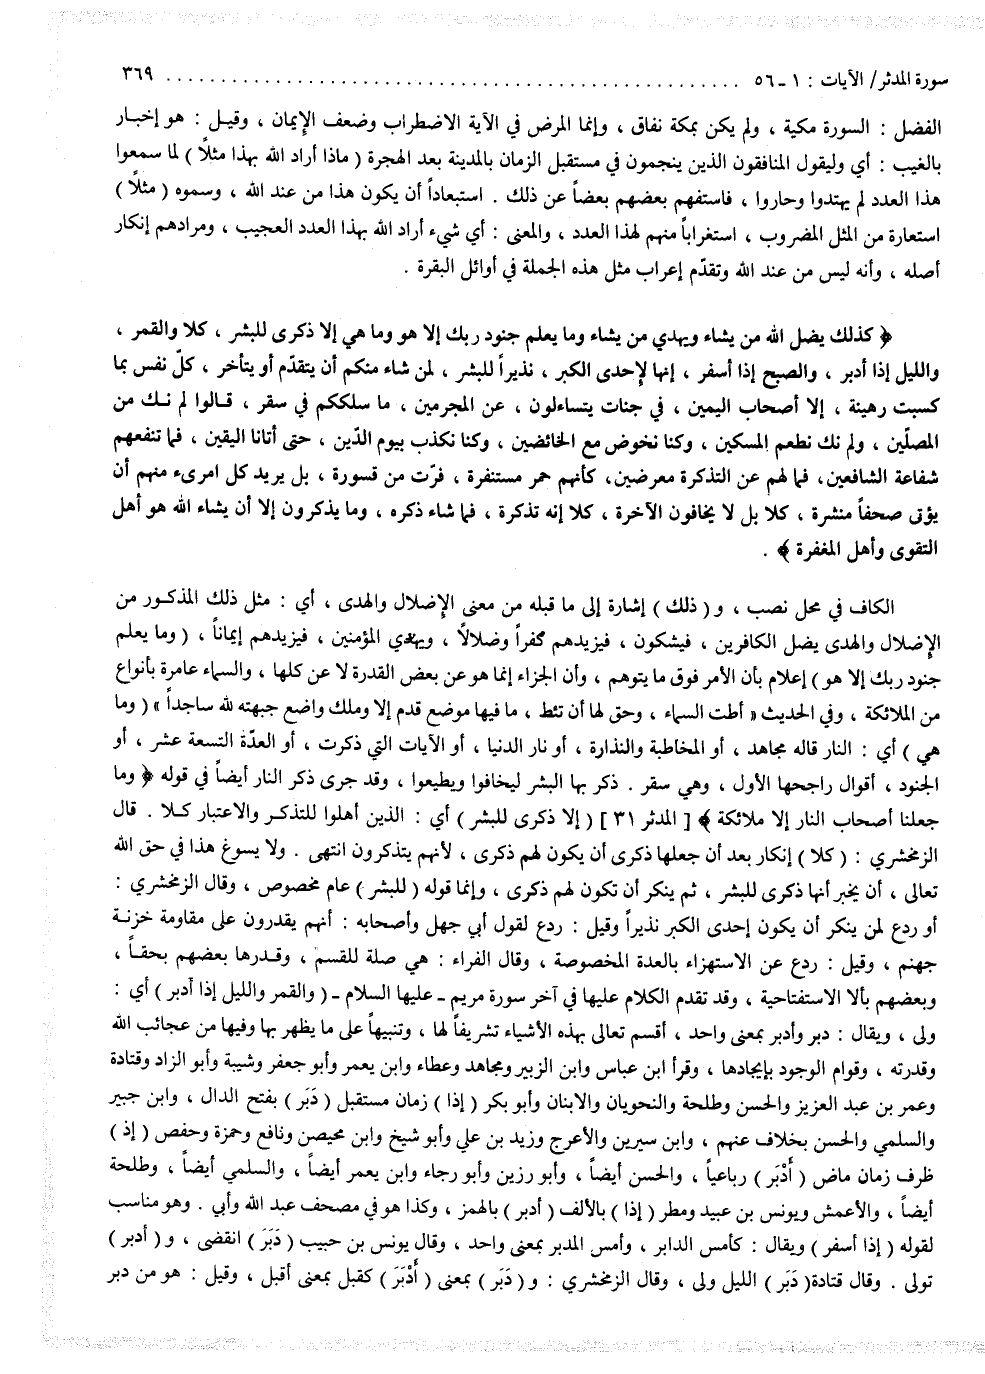 سورة المدثر/ الآيات : ١ ـ ٥٦ ................................................ ٣٦٩
الفضل : السورة مكية ، ولم يكن بمكة نفاق ، وإنما المرض في الآية الاضطراب وضعف الإيمان ، وقيل : هو إخبار
بالغيب : أي وليقول المنافقون الذين ينجمون في مستقبل الزمان بالمدينة بعد الهجرة ( ماذا أراد الله بهذا مثلاً ) لما سمعوا
هذا العدد لم يهتدوا وحاروا ، فاستفهم بعضهم بعضاً عن ذلك . استبعاداً أن يكون هذا من عند الله ، وسموه ( مثلاً )
استعارة من المثل المضروب ، استغراباً منهم لهذا العدد ، والمعنى : أي شيء أراد الله بهذا العدد العجيب ، ومرادهم إنكار
أصله ، وأنه ليس من عند الله وتقدّم إعراب مثل هذه الجملة في أوائل البقرة .
﴿ كذلك يضل الله من يشاء ويهدي من يشاء وما يعلم جنود ربك إلا هو وما هي إلا ذكرى للبشر ، كلا والقمر ،
والليل إذا أدبر ، والصبح إذا أسفر ، إنها لإحدى الكبر ، نذيراً للبشر ، لمن شاء منكم أن يتقدّم أو يتأخر ، كلّ نفس بما
كسبت رهينة ، إلا أصحاب اليمين ، في جنات يتساءلون ، عن المجرمين ، ما سلككم في سقر ، قـالوا لم نـك من
المصلّين ، ولم نك نطعم المسكين ، وكنا نخوض مع الخائضين ، وكنا نكذب بيوم الدّين ، حتى أتانا اليقين ، فما تنفعهم
شفاعة الشافعين، فما لهم عن التذكرة معرضين، كأنهم حمر مستنفرة ، فرّت من قسورة ، بل يريد كل امرىء منهم أن
يؤتى صحفاً منشرة ، كلا بل لا يخافون الآخرة ، كلا إنه تذكرة ، فما شاء ذكره ، وما يذكرون إلا أن يشاء الله هو أهل
التقوى وأهل المغفرة ﴾ .
الكاف في محل نصب ، و( ذلك ) إشارة إلى ما قبله من معنى الإضلال والهدى ، أي : مثل ذلك المذكـور من
الإضلال والهدى يضل الكافرين ، فيشكون ، فيزيدهم كفراً وضلالاً ، ويهدي المؤمنين ، فيزيدهم إيماناً ، ( وما يعلم
جنود ربك إلا هو ) إعلام بأن الأمر فوق ما يتوهم ، وأن الجزاء إنما هو عن بعض القدرة لا عن كلها ، والسماء عامرة بأنواع
من الملائكة ، وفي الحديث « أطت السماء ، وحق لها أن تئط ، ما فيها موضع قدم إلا وملك واضع جبهته لله ساجداً » ( وما
هي ) أي : النار قاله مجاهد ، أو المخاطبة والنذارة ، أو نار الدنيا ، أو الآيات التي ذكرت ، أو العدّة التسعة عشر ، أو
الجنود ، أقوال راجحها الأول ، وهي سقر . ذكر بها البشر ليخافوا ويطيعوا ، وقد جرى ذكر النار أيضاً في قوله ﴿ وما
جعلنا أصحاب النار إلا ملائكة ﴾ [ المدثر ٣١ ] ( إلا ذكرى للبشر ) أي : الذين أهلوا للتذكـر والاعتبار كـلا . قال
الزمخشري : ( كلا ) إنكار بعد أن جعلها ذكرى أن يكون لهم ذكرى ، لأنهم يتذكرون انتهى . ولا يسوغ هذا في حق الله
تعالى ، أن يخبر أنها ذكرى للبشر ، ثم ينكر أن تكون لهم ذكرى ، وإنما قوله ( للبشر ) عام مخصوص ، وقال الزمخشري :
أو ردع لمن ينكر أن يكون إحدى الكبر نذيراً وقيل : ردع لقول أبي جهل وأصحابه : أنهم يقدرون على مقاومة خزنـة
جهنم ، وقيل : ردع عن الاستهزاء بالعدة المخصوصة ، وقال الفراء : هي صلة للقسم ، وقـدرها بعضهم بحقـاً ،
وبعضهم بألا الاستفتاحية ، وقد تقدم الكلام عليها في آخر سورة مريم ـ عليها السلام ـ ( والقمر والليل إذا أدبر ) أي :
ولى ، ويقال : دبر وأدبر بمعنى واحد ، أقسم تعالى بهذه الأشياء تشريفاً لها ، وتنبيهاً على ما يظهر بها وفيها من عجائب الله
وقدرته ، وقوام الوجود بإيجادها ، وقرأ ابن عباس وابن الزبير ومجاهد وعطاء وابن يعمر وأبو جعفر وشيبة وأبو الزاد وقتادة
وعمر بن عبد العزيز والحسن وطلحة والنحويان والابنان وأبو بكر ( إذا ) زمان مستقبل ( دَبَر ) بفتح الدال ، وابن جبير
والسلمي والحسن بخلاف عنهم ، وابن سيرين والأعرج وزيد بن علي وأبو شيخ وابن محيصن ونافع وحمزة وحفص ( إذ )
ظرف زمان ماض ( أَدْبَر ) رباعياً ، والحسن أيضاً ، وأبو رزين وأبو رجاء وابن يعمر أيضاً ، والسلمي أيضاً ، وطلحة
أيضاً ، والأعمش ويونس بن عبيد ومطر ( إذا ) بالألف ( أدبر ) بالهمز ، وكذا هو في مصحف عبد الله وأبي . وهو مناسب
لقوله ( إذا أسفر ) ويقال : كأمس الدابر ، وأمس المدبر بمعنى واحد ، وقال يونس بن حبيب ( دَبَرَ ) انقضى ، و ( أدبر )
تولى . وقال قتادة( دَبَر ) الليل ولى ، وقال الزمخشري : و ( دَبَر ) بمعنى ( أَدْبَرَ ) كقبل بمعنى أقبل ، وقيل : هو من دبر